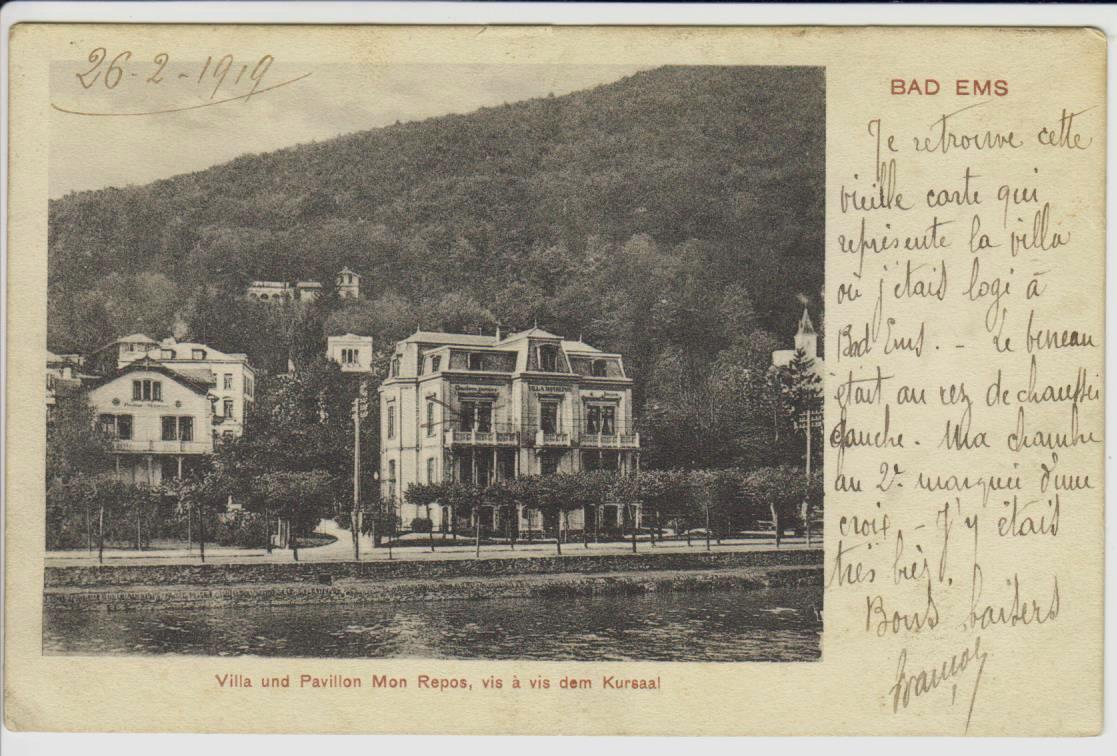 26-2-1919
BAD EMS
Je retrouve cette
vieille carte qui
représente la villa
où j'étais logé à
Bad Ems. - Le bureau
était au rez de chaussée
gauche. Ma chambre
au 2e marquée d'une
croix - J'y étais
très bien.
Bons baisers
Villa und Pavillon Mon Repos, vis à vis dem Kursaal